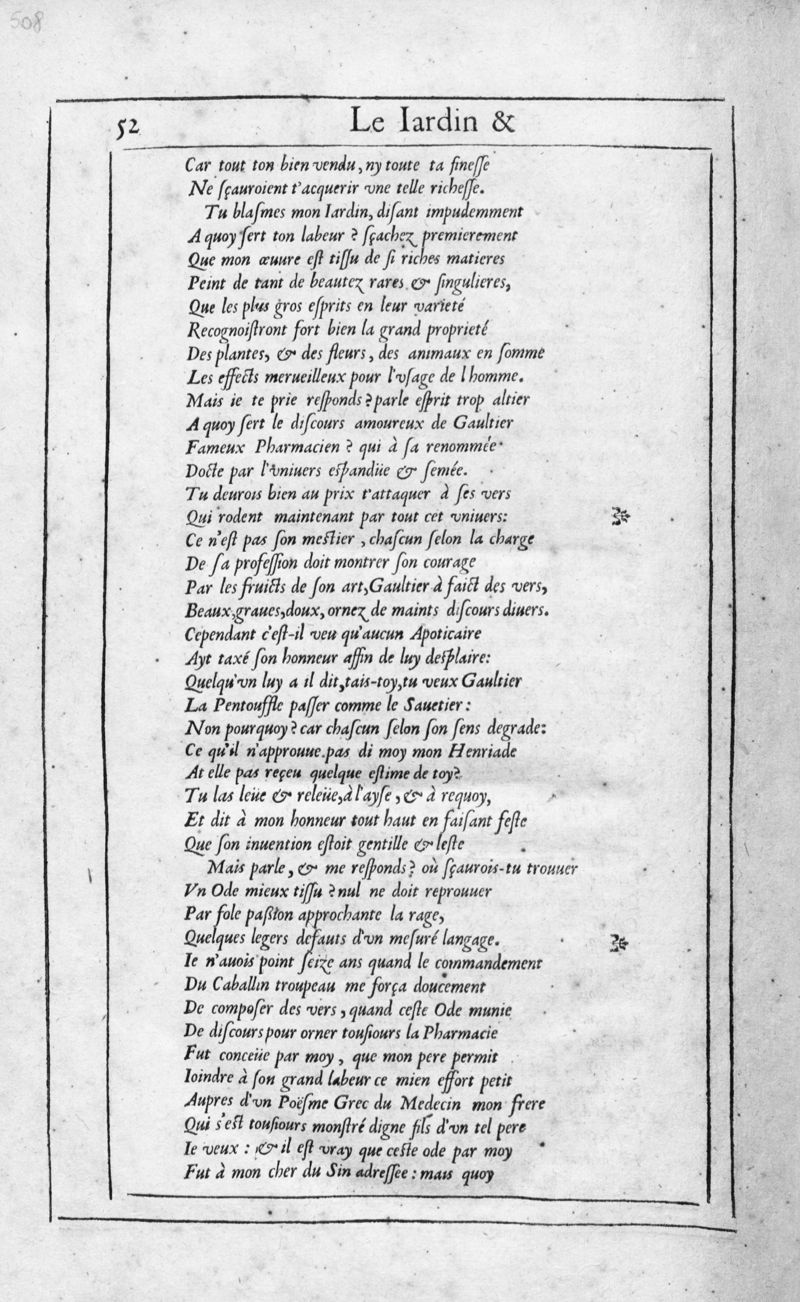 508
52 Le Iardin &
Car tout ton bien vendu, ny toute ta finesse
Ne sçauroient t'acquerir vne telle richesse.
Tu blasmes mon Iardin, disant impudemment
A quoy sert ton labeur ? sçachez premierement
Que mon œuure est tissu de si riches matieres
Peint de tant de beautez rares & singulieres,
Que les plus gros esprits en leur varieté
Recognoistront fort bien la grand proprieté
Des plantes, & des fleurs, des animaux en somme
Les effects merueilleux pour l'vsage de l'homme.
Mais ie te prie responds ? parle esprit trop altier
A quoy sert le discours amoureux de Gaultier
Fameux Pharmacien ? qui à sa renommée
Docte par l'vniuers espandüe & semée.
Tu deurois bien au prix t'attaquer à ses vers
Qui rodent maintenant par tout cet vniuers:
Ce n'est pas son mestier, chascun selon la charge
De sa profession doit montrer son courage
Par les fruicts de son art, Gaultier à faict des vers,
Beaux, graues, doux, ornez de maints discours diuers.
Cependant c'est-il veu qu'aucun Apoticaire
Ayt taxé son honneur affin de luy desplaire:
Quelqu'vn luy a il dit, tais-toy, tu veux Gaultier
La Pentouffle passer comme le Sauetier:
Non pourquoy ? car chascun selon son sens degrade:
Ce qu'il n'approuue pas di moy mon Henriade
At elle pas reçeu quelque estime de toy?
Tu las leüe & releüe, à l'ayse, & à requoy,
Et dit à mon honneur tout haut en faisant feste
Que son inuention estoit gentille & leste
Mais parle, & me responds ? où sçaurois-tu trouuer
Vn Ode mieux tissu ? nul ne doit reprouuer
Par fole passion approchante la rage,
Quelques legers defauts d'vn mesuré langage.
Ie n'auois point seize ans quand le commandement
Du Caballin troupeau me força doucement
De composer des vers, quand ceste Ode munie
De discours pour orner tousiours la Pharmacie
Fut conceüe par moy, que mon pere permit
Ioindre à son grand labeur ce mien effort petit
Aupres d'vn Poësme Grec du Medecin mon frere
Qui s'est tousiours monstré digne fils d'vn tel pere
Ie veux : & il est vray que ceste ode par moy
Fut à mon cher du Sin adressée : mais quoy